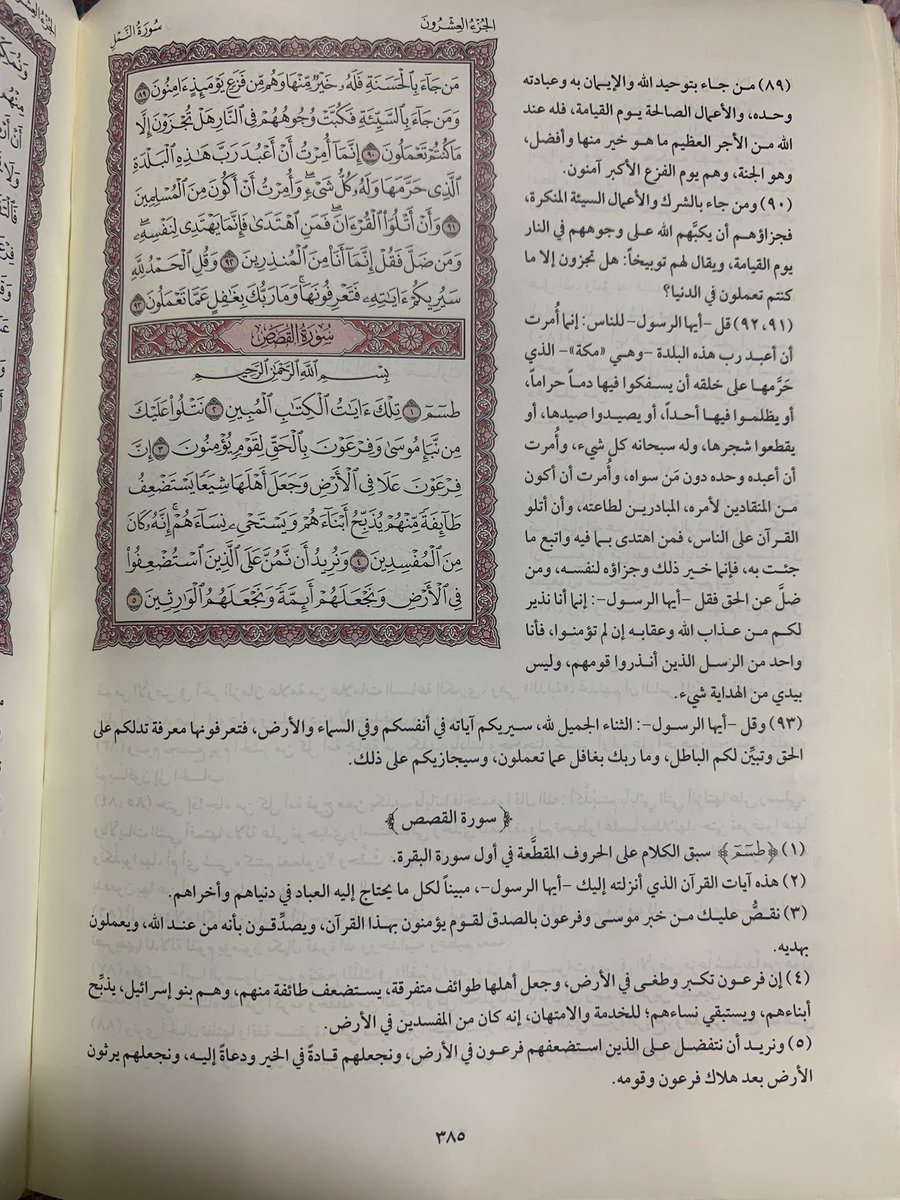 الجُزْءُ العِشْرُونَ
سُورَةُ النَّمْلِ
مَن جَآءَ بِٱلْحَسَنَةِ فَلَهُۥ خَيْرٌ مِّنْهَا وَهُم مِّن فَزَعٍ يَوْمَئِذٍ ءَامِنُونَ ٨٩
وَمَن جَآءَ بِٱلسَّيِّئَةِ فَكُبَّتْ وُجُوهُهُمْ فِى ٱلنَّارِ هَلْ تُجْزَوْنَ إِلَّا
مَا كُنتُمْ تَعْمَلُونَ ٩٠ إِنَّمَآ أُمِرْتُ أَنْ أَعْبُدَ رَبَّ هَٰذِهِ ٱلْبَلْدَةِ
ٱلَّذِى حَرَّمَهَا وَلَهُۥ كُلُّ شَىْءٍ ۖ وَأُمِرْتُ أَنْ أَكُونَ مِنَ ٱلْمُسْلِمِينَ
٩١ وَأَنْ أَتْلُوَا۟ ٱلْقُرْءَانَ ۖ فَمَنِ ٱهْتَدَىٰ فَإِنَّمَا يَهْتَدِى لِنَفْسِهِۦ ۖ
وَمَن ضَلَّ فَقُلْ إِنَّمَآ أَنَا۠ مِنَ ٱلْمُنذِرِينَ ٩٢ وَقُلِ ٱلْحَمْدُ لِلَّهِ
سَيُرِيكُمْ ءَايَٰتِهِۦ فَتَعْرِفُونَهَا ۚ وَمَا رَبُّكَ بِغَٰفِلٍ عَمَّا تَعْمَلُونَ ٩٣
سُورَةُ القَصَصِ
بِسْمِ ٱللَّهِ ٱلرَّحْمَٰنِ ٱلرَّحِيمِ
طسٓمٓ ١ تِلْكَ ءَايَٰتُ ٱلْكِتَٰبِ ٱلْمُبِينِ ٢ نَتْلُوا۟ عَلَيْكَ
مِن نَّبَإِ مُوسَىٰ وَفِرْعَوْنَ بِٱلْحَقِّ لِقَوْمٍ يُؤْمِنُونَ ٣ إِنَّ
فِرْعَوْنَ عَلَا فِى ٱلْأَرْضِ وَجَعَلَ أَهْلَهَا شِيَعًا يَسْتَضْعِفُ
طَآئِفَةً مِّنْهُمْ يُذَبِّحُ أَبْنَآءَهُمْ وَيَسْتَحْىِۦ نِسَآءَهُمْ ۚ إِنَّهُۥ كَانَ
مِنَ ٱلْمُفْسِدِينَ ٤ وَنُرِيدُ أَن نَّمُنَّ عَلَى ٱلَّذِينَ ٱسْتُضْعِفُوا۟
فِى ٱلْأَرْضِ وَنَجْعَلَهُمْ أَئِمَّةً وَنَجْعَلَهُمُ ٱلْوَٰرِثِينَ ٥
(٨٩) من جاء بتوحيد الله والإيمان به وعبادته
وحده، والأعمال الصالحة يوم القيامة، فله عند
الله من الأجر العظيم ما هو خير منها وأفضل،
وهو الجنة، وهم يوم الفزع الأكبر آمنون.
(٩٠) ومن جاء بالشرك والأعمال السيئة المنكرة،
فجزاؤهم أن يكبَّهم الله على وجوههم في النار
يوم القيامة، ويقال لهم توبيخاً: هل تجزون إلا ما
كنتم تعملون في الدنيا؟
(٩١، ٩٢) قل -أيها الرسول- للناس: إنما أُمرت
أن أعبد رب هذه البلدة -وهي «مكة»- الذي
حَرَّمها على خلقه أن يسفكوا فيها دماً حراماً،
أو يظلموا فيها أحداً، أو يصيدوا صيدها، أو
يقطعوا شجرها، وله سبحانه كل شيء، وأُمرت
أن أعبده وحده دون مَن سواه، وأُمرت أن أكون
من المنقادين لأمره، المبادرين لطاعته، وأن أتلو
القرآن على الناس، فمن اهتدى بما فيه واتبع ما
جئت به، فإنما خير ذلك وجزاؤه لنفسه، ومن
ضلَّ عن الحق فقل -أيها الرسول-: إنما أنا نذير
لكم من عذاب الله وعقابه إن لم تؤمنوا، فأنا
واحد من الرسل الذين أنذروا قومهم، وليس
بيدي من الهداية شيء.
(٩٣) وقل -أيها الرسول-: الثناء الجميل لله، سيريكم آياته في أنفسكم وفي السماء والأرض، فتعرفونها معرفة تدلكم على
الحق وتبيِّن لكم الباطل، وما ربك بغافل عما تعملون، وسيجازيكم على ذلك.
﴿سورة القصص﴾
(١) ﴿طسٓمٓ﴾ سبق الكلام على الحروف المقطَّعة في أول سورة البقرة.
(٢) هذه آيات القرآن الذي أنزلته إليك -أيها الرسول-، مبيناً لكل ما يحتاج إليه العباد في دنياهم وأخراهم.
(٣) نقصُّ عليك من خبر موسى وفرعون بالصدق لقوم يؤمنون بهذا القرآن، ويصدِّقون بأنه من عند الله، ويعملون
بهديه.
(٤) إن فرعون تكبر وطغى في الأرض، وجعل أهلها طوائف متفرقة، يستضعف طائفة منهم، وهم بنو إسرائيل، يذبِّح
أبناءهم، ويستبقي نساءهم؛ للخدمة والامتهان، إنه كان من المفسدين في الأرض.
(٥) ونريد أن نتفضل على الذين استضعفهم فرعون في الأرض، ونجعلهم قادةً في الخير ودعاةً إليه، ونجعلهم يرثون
الأرض بعد هلاك فرعون وقومه.
٣٨٥